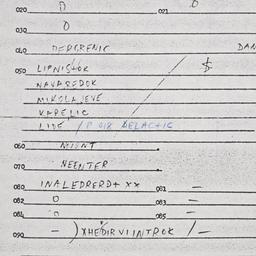 020 0 021 0
030 0
040 DERGRENIC DAN
050 LIPNISHOK $
NAVAREDOK
MIKOLAJEVE
KARELIC
LIDE / P 018 BELACTIC
060
070 NEENTER
080 INALEDRERD+ XX 081 —
082 0 083 —
084 0 085 —
090 — ) XHEDIR VIINTROK / —